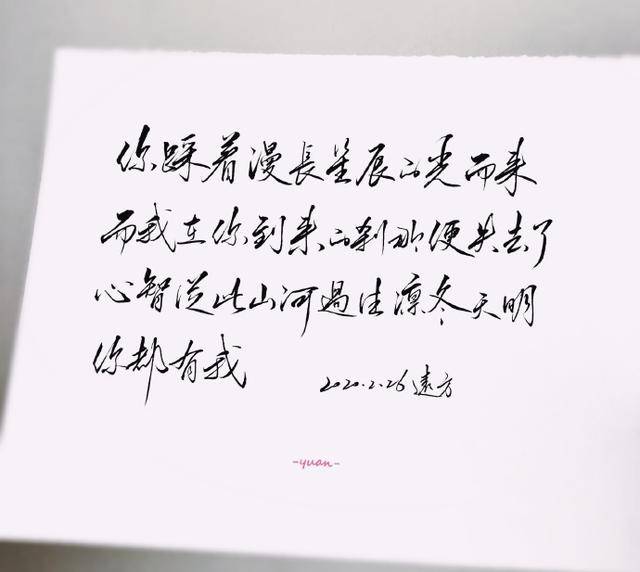 你踩着漫長星辰的光而来
而我在你到来的刹那便失去了
心智从此山河過往凛冬天明
你都有我
2020.2.26遠方
-yuan-